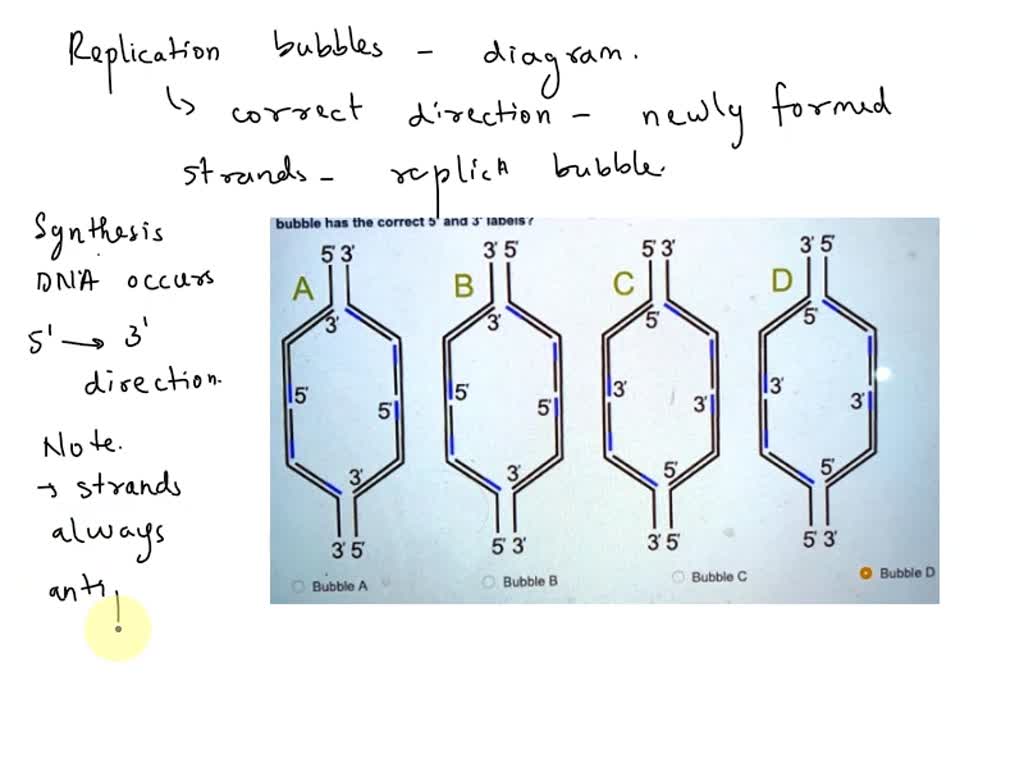 Replication bubbles - diagram.
↳ correct direction - newly formed
strands - replicA bubble.
Synthesis
DNA occurs
5' → 3'
direction.
Note.
→ strands
always
anti
bubble has the correct 5' and 3' labels?
5' 3'
A
3'
5'
5'
3'
3' 5'
Bubble A
3' 5'
B
3'
5'
5'
3'
5' 3'
Bubble B
5' 3'
C
5'
3'
3'
5'
3' 5'
Bubble C
3' 5'
D
5'
3'
3'
5'
5' 3'
Bubble D